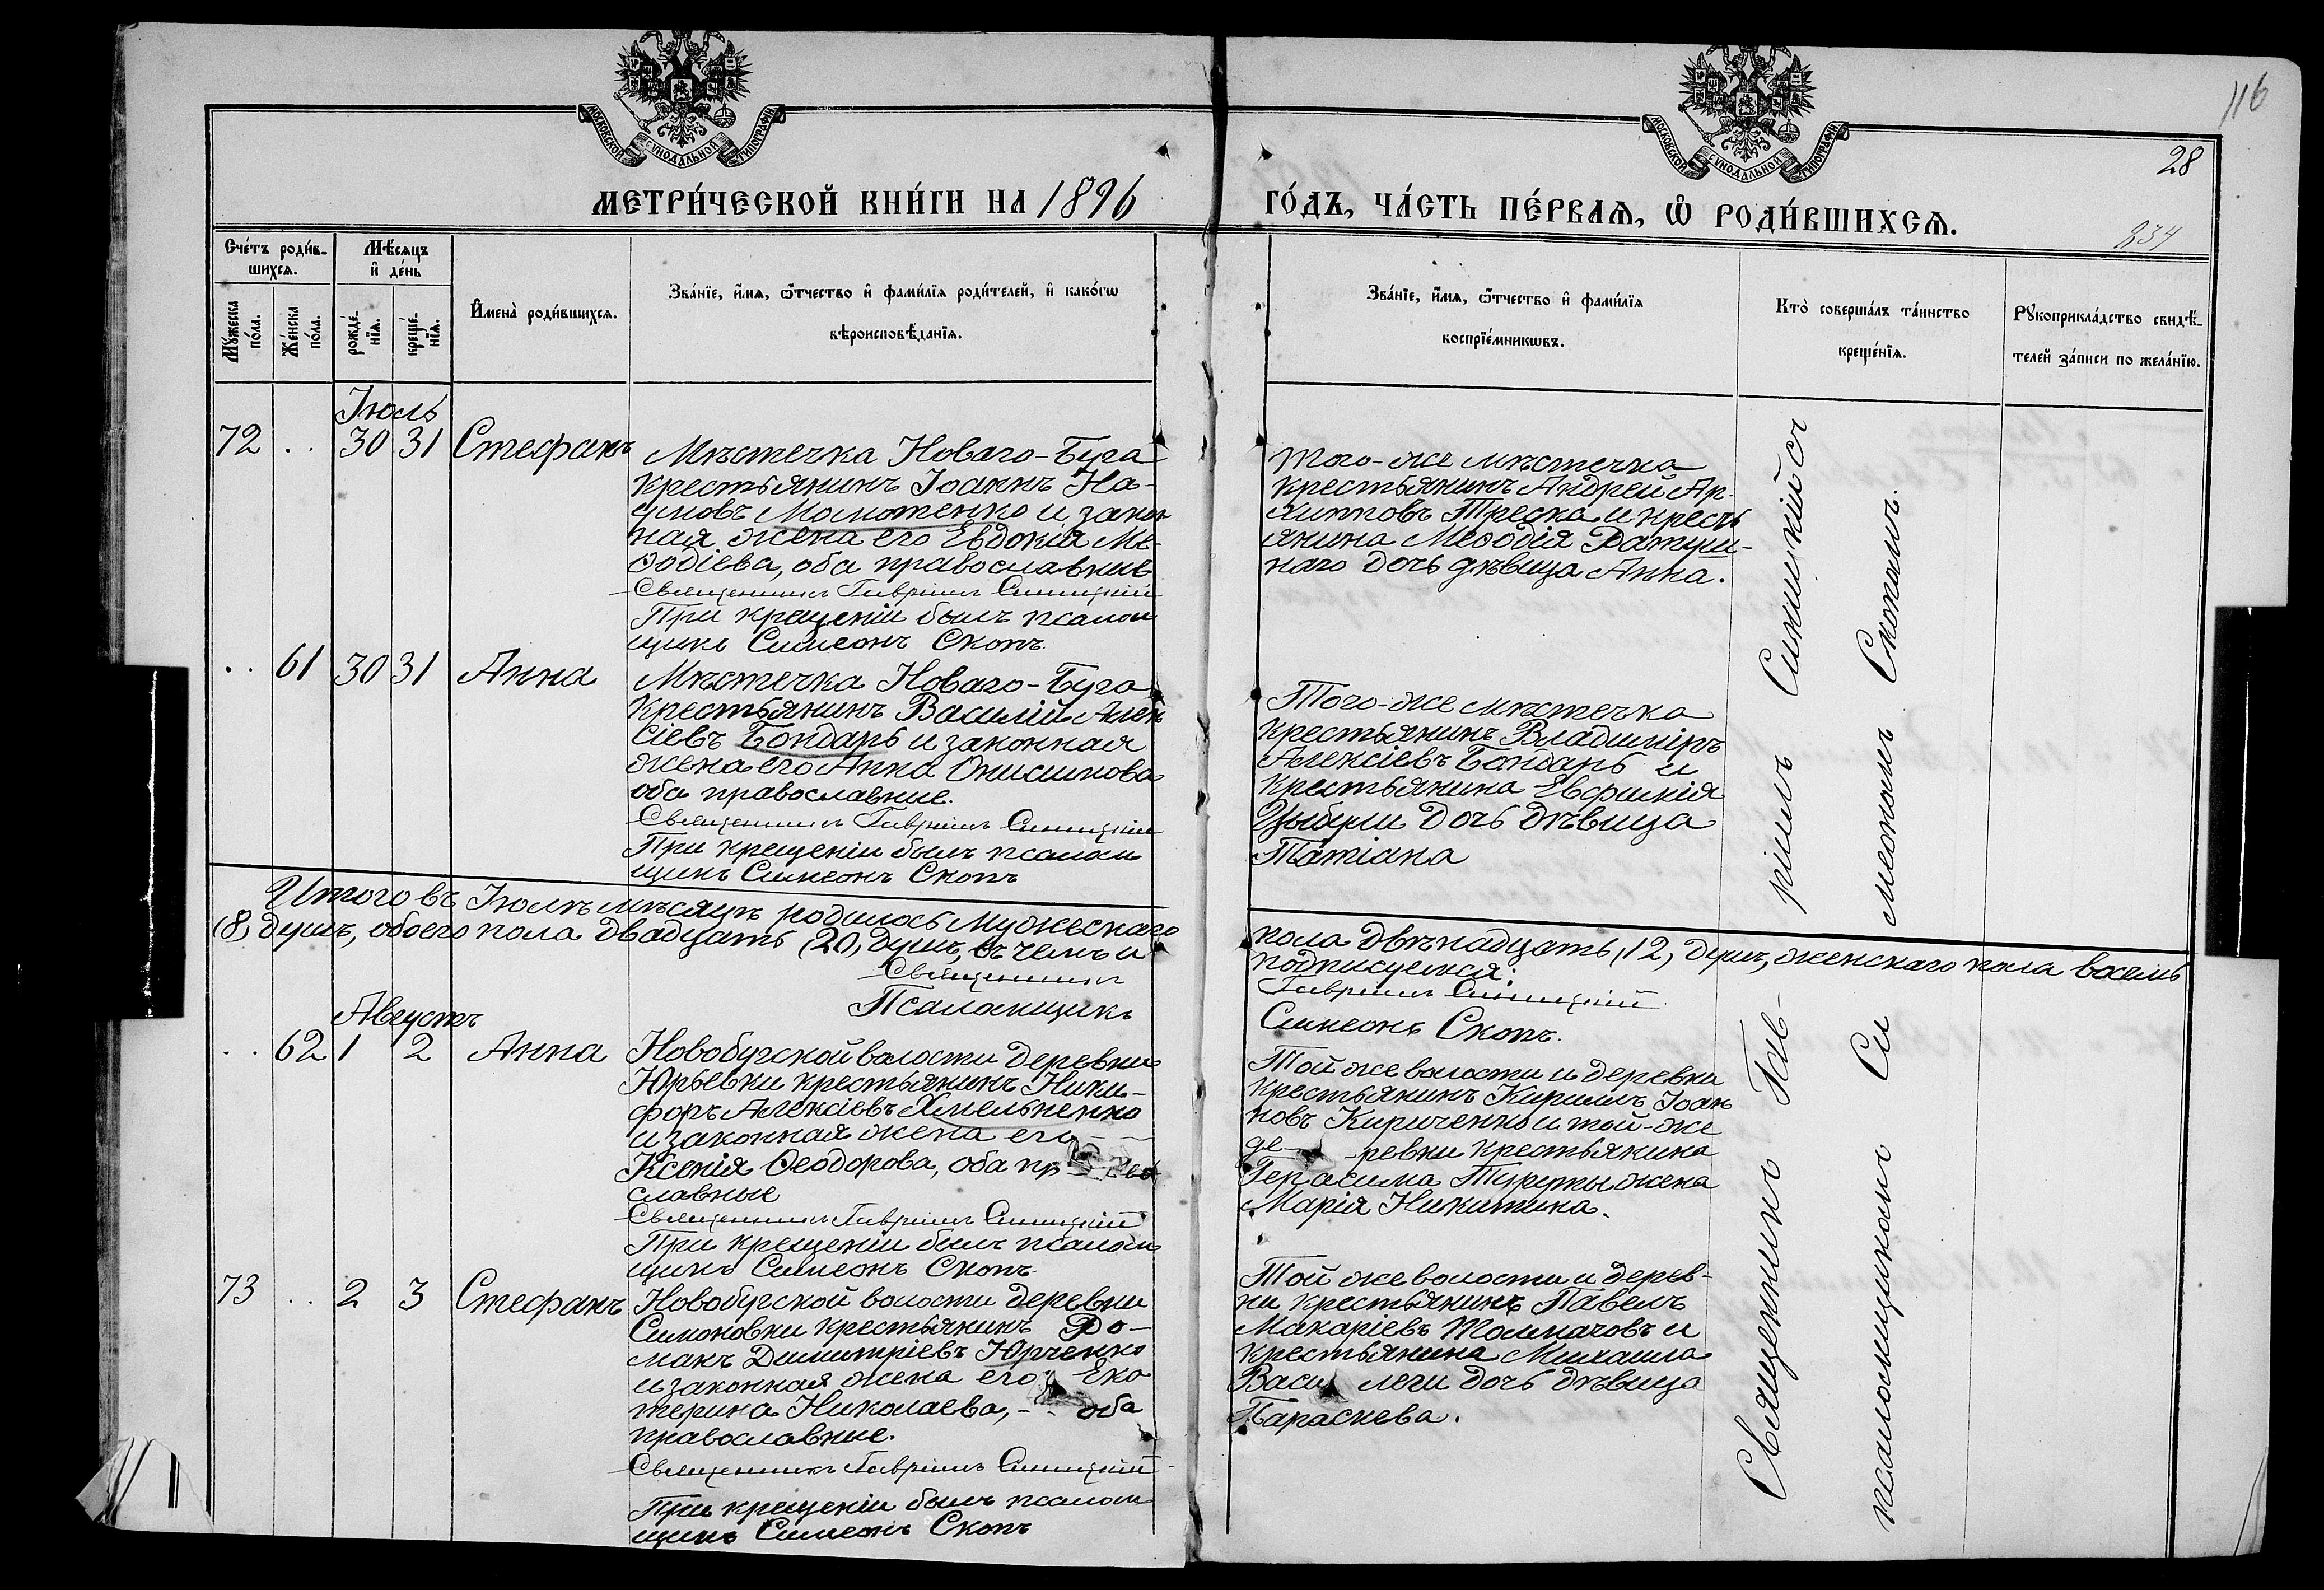 МОСКОВСКОЙ СѴНОДАЛЬНОЙ ТИПОГРАФІИ
МОСКОВСКОЙ СѴНОДАЛЬНОЙ ТИПОГРАФІИ
116
28
МЕТРИ́ЧЕСКОЙ КНИ́ГИ НА 1896
ГО́ДЪ, ЧА́СТЬ ПЕ́РВАѦ, Ѡ҆ РОДИ́ВШИХСѦ.
234
Сче́тъ роди́в-
шихсѧ.
Мꙋжеска по́ла.
Же́нска по́ла.
Мѣ́сѧцъ
и҆ де́нь
рожде́-
нїѧ.
креще́-
нїѧ.
И҆мена̀ роди́вшихсѧ.
Зва́нїе, и҆́мѧ, ѻ҆́тчество и҆ фами́лїѧ роди́телей, и҆ како́гѡ
вѣроисповѣ́данїѧ.
Зва́нїе, и҆́мѧ, ѻ҆́тчество и҆ фами́лїѧ
воспрїе́мникѡвъ.
Кто̀ соверша́лъ та́инство
креще́нїѧ.
Рꙋкоприкла́дство свидѣ́-
телей за́писи по жела́нїю.
Іюль
72 .. 30 31 Стефанъ
Мѣстечка Новаго-Буга
крестьянинъ Іоаннъ На-
умовъ Мамотенко и закон
ная жена его Евдокія Ме-
ѳодіева, оба православные
Священникъ Гавріилъ Синицкій
При крещеніи былъ псалом
щикъ Симеонъ Скопъ.
того-же мѣстечка
крестьянинъ Андрей Ар-
хиповъ Треска и кресть
янина Меѳодія Ратуш-
наго дочь дѣвица Анна.
.. 61 30 31 Анна
Мѣстечка Новаго-Буга
крестьянинъ Василій Алек
сіевъ Бондарь и законная
жена его Анна Онисимова
оба православные.
Священникъ Гавріилъ Синицкій
При крещеніи былъ псалом
щикъ Симеонъ Скопъ
Того-же мѣстечка
крестьянинъ Владиміръ
Алексіевъ Бондарь и
крестьянина Евфимія
Цыбули дочь дѣвица
Татіана
Итого въ Іюлѣ мѣсяцѣ родилось Мужескаго
пола двѣнадцать (12) душъ, женскаго пола восемь
(8) душъ, обоего пола двадцать (20) душъ, въ чемъ и
подписуемся:
Священникъ
Гавріилъ Синицкій
Псаломщикъ
Симеонъ Скопъ.
Августъ
.. 62 1 2 Анна
Новобугской волости деревни
Юрьевки крестьянинъ Ники-
форъ Алексіевъ Хмельненко
и законная жена его - -
Ксенія Ѳеодорова, оба пр
славные
Священникъ Гавріилъ Синицкій
При крещеніи былъ псалом
щикъ Симеонъ Скопъ.
Той же волости и деревни
крестьянинъ Кириллъ Іоан
новъ Кириченко и той-же
де- ревни крестьянина
Герасима Туруты жена
Марія Никитина.
73 .. 2 3 Стефанъ
Новобугской волости деревни
Симоновки крестьянинъ Ро-
манъ Димитріевъ Юрченко
и законная жена его Ека
терина Николаева, - - оба
православные.
Священникъ Гавріилъ Синицкій
При крещеніи былъ псалом
щикъ Симеонъ Скопъ
Той же волости и дерев-
ни крестьянинъ Павелъ
Макаріевъ Толмачовъ и
крестьянина Михаила
Васи леги дочь дѣвица
Параскева.
Священникъ Гав-
ріилъ Синицкій съ
псаломщикомъ Си
меономъ Скопомъ.